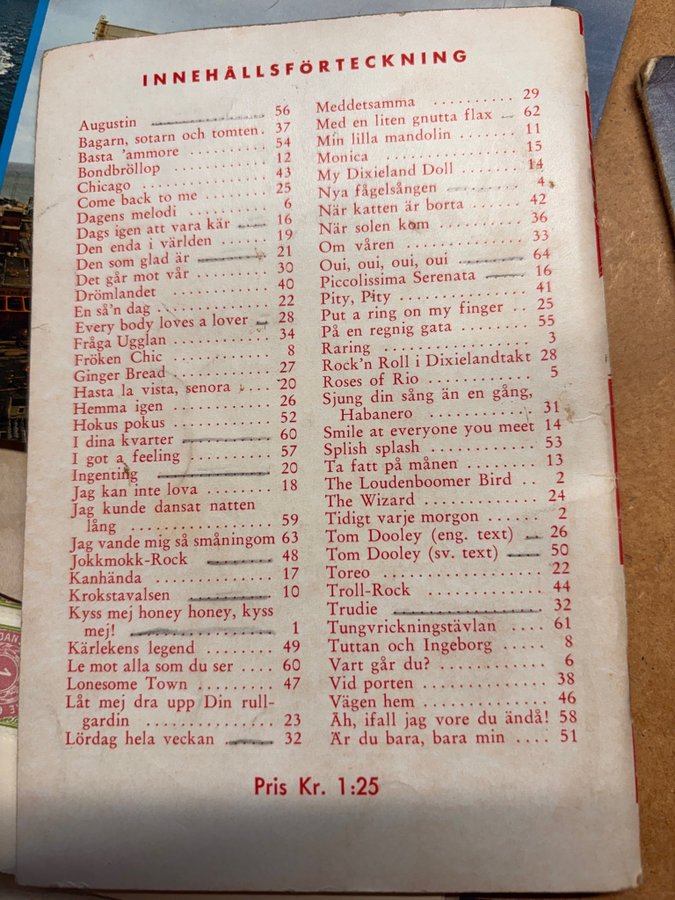 INNEHÅLLSFÖRTECKNING
Augustin 56
Bagarn, sotarn och tomten. 37
Basta 'ammore ......... 54
Bondbröllop ........... 12
Chicago ............... 43
Come back to me ....... 25
Dagens melodi ......... 6
Dags igen att vara kär 16
Den enda i världen ..... 19
Den som glad är 21
Det går mot vår ........ 30
Drömlandet ........... 40
En så'n dag ............ 22
Every body loves a lover 28
Fråga Ugglan .......... 34
Fröken Chic ........... 8
Ginger Bread .......... 27
Hasta la vista, senora ... 20
Hemma igen .......... 26
Hokus pokus .......... 52
I dina kvarter 60
I got a feeling ......... 57
Ingenting 20
Jag kan inte lova ....... 18
Jag kunde dansat natten
lång ................ 59
Jag vande mig så småningom 63
Jokkmokk-Rock 48
Kanhända ............ 17
Krokstavalsen 10
Kyss mej honey honey, kyss
mej! 1
Kärlekens legend ....... 49
Le mot alla som du ser ... 60
Lonesome Town ........ 47
Låt mej dra upp Din rull-
gardin .............. 23
Lördag hela veckan 32
Meddetsamma ......... 29
Med en liten gnutta flax 62
Min lilla mandolin ...... 11
Monica ............... 15
My Dixieland Doll ..... 14
Nya fågelsången 4
När katten är borta ..... 42
När solen kom ......... 36
Om våren ............. 33
Oui, oui, oui, oui 64
Piccolissima Serenata 16
Pity, Pity .............. 41
Put a ring on my finger .. 25
På en regnig gata ....... 55
Raring ................ 3
Rock'n Roll i Dixielandtakt 28
Roses of Rio .......... 5
Sjung din sång än en gång,
Habanero ............ 31
Smile at everyone you meet 14
Splish splash ........... 53
Ta fatt på månen ....... 13
The Loudenboomer Bird .. 2
The Wizard ........... 24
Tidigt varje morgon ..... 2
Tom Dooley (eng. text) 26
Tom Dooley (sv. text) 50
Toreo ................. 22
Troll-Rock ............ 44
Trudie 32
Tungvrickningstävlan .... 61
Tuttan och Ingeborg .... 8
Vart går du? ........... 6
Vid porten ............ 38
Vägen hem ............ 46
Äh, ifall jag vore du ändå! 58
Är du bara, bara min .... 51
Pris Kr. 1:25